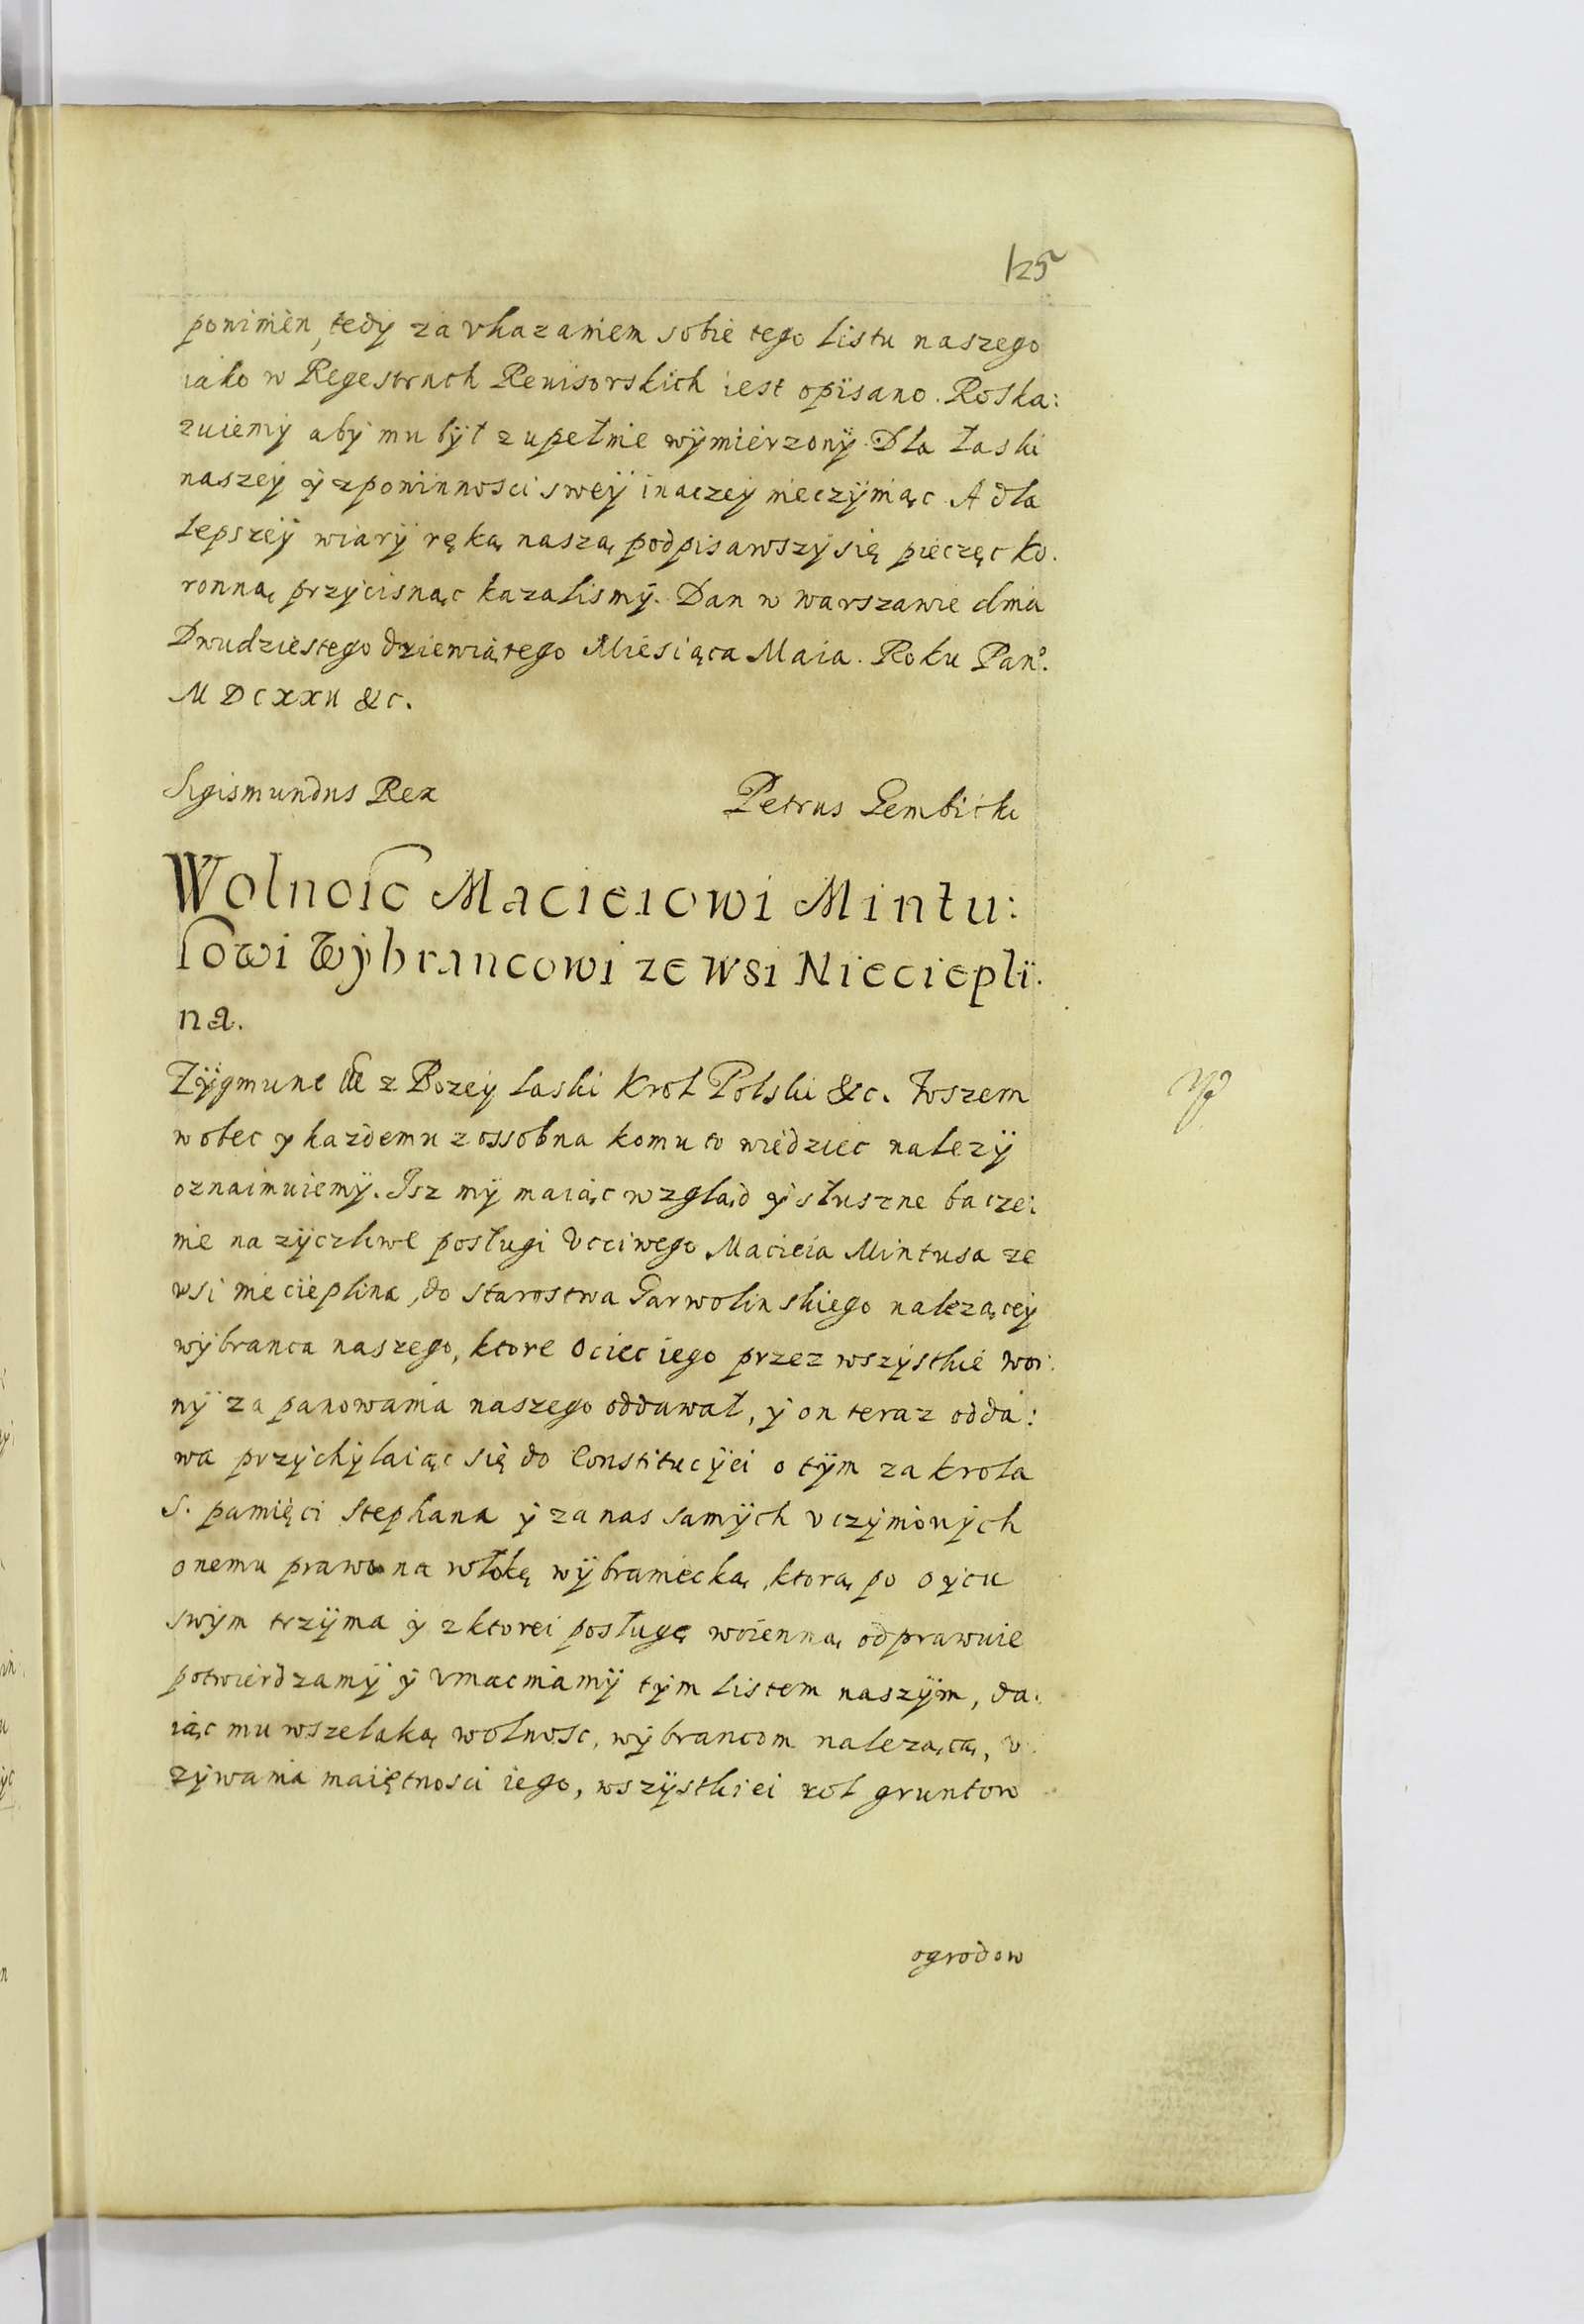 125
powinien, tedy za vkazaniem sobie tego Listu naszego
iako w Regestrach Reuisorskich iest opisano. Roska:
zuiemÿ abÿ mu bÿł zupełnie wÿmierzonÿ. Dla łaski
naszeÿ ÿ zpowinnosci sweÿ inaczeÿ nieczÿniąc A dla
Lepszeÿ wiarÿ ręką naszą podpisawszÿ się pieczęc ko.
ronną przÿcisnąc kazalismÿ. Dan w Warszawie dnia
Dwudziestego dziewiątego Miesiąca Maia. Roku Pan°.
MDCXXII &c.
Sigismundus Rex
Petrus Gembicki
Wolnosc Macieiowi Mintu:
sowi Wÿbrancowi ze wsi Nieciepli.
na.
Zÿgmunt III z Bozeÿ Laski Krol Polski &c. Wszem
wobec ÿ kazdemu z ossobna komu to wiedziec nalezÿ
oznaimuiemÿ. Isz mÿ maiąc wzgląd ÿ słuszne bacze:
nie na zÿczliwe posługi Vcciwego Macieia Mintusa ze
wsi niecieplina, do Starostwa Garwolinskiego naleząceÿ
wÿbranca naszego, ktore ociec iego przez wszÿstkie woi:
nÿ za panowania naszego oddawał, ÿ on teraz odda:
wa przÿchÿlaiąc się do Constitucÿei o tÿm za krola
S. pamięci Stephana ÿ za nas samÿch vczÿnionÿch
onemu prawo na włokę wÿbraniecką, ktorą po oÿcu
swÿm trzÿma ÿ z ktorei posługę woienną odprawuie
potwierdzamÿ ÿ vmacniamÿ tÿm listem naszÿm, da:
iąc mu wszelaką wolnosc, wÿbrancom nalezącą, v:
zÿwania maiętnosci iego, wszÿstkiei rol gruntow
ogrodow